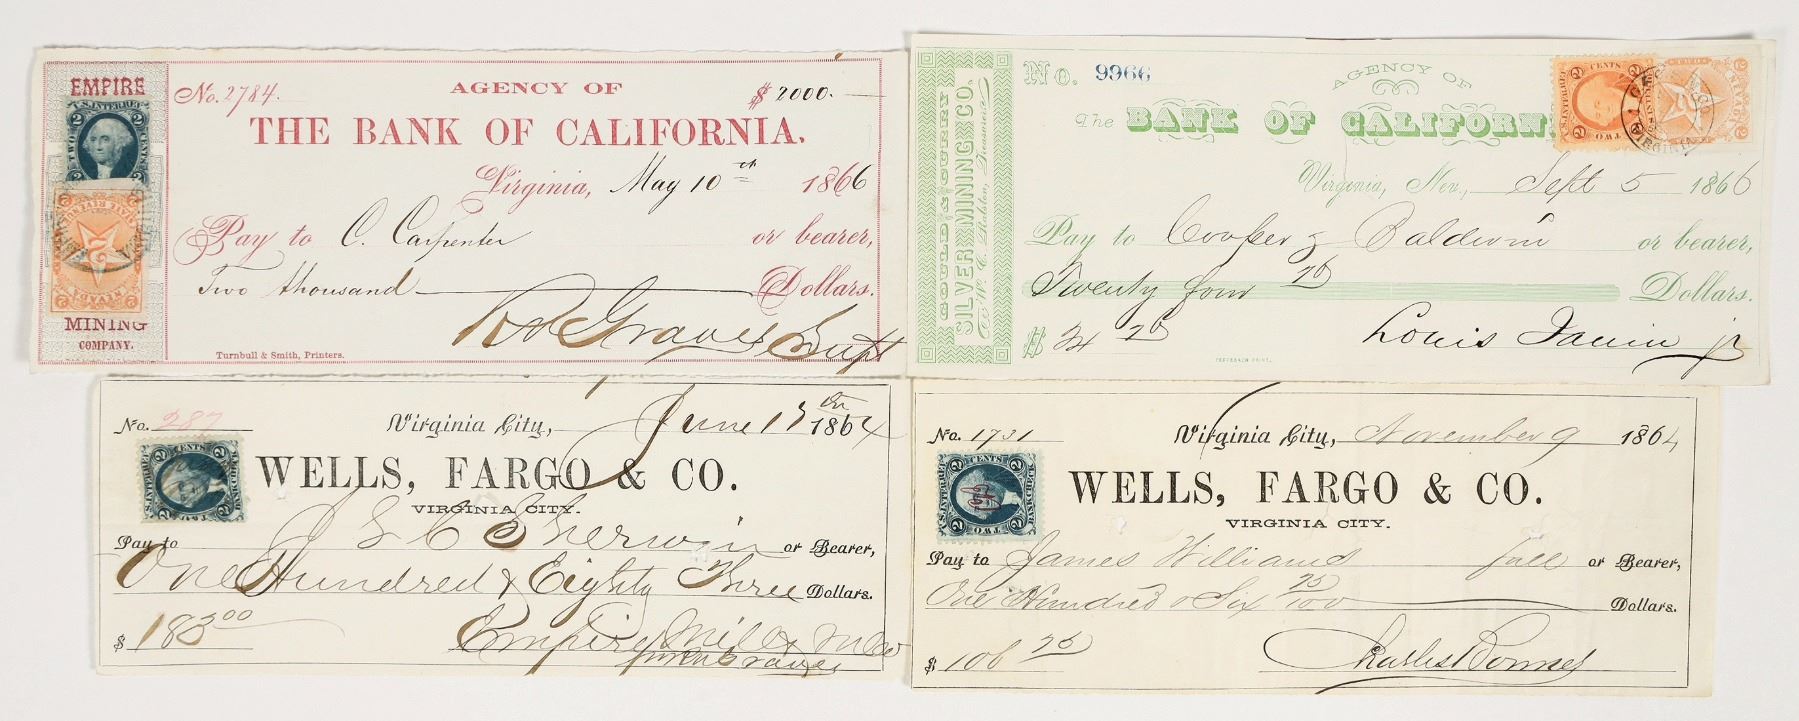 EMPIRE
MINING
COMPANY.
U.S. INTER. REV.
2 2
TWO CENTS
2 2
No. 2784.
AGENCY OF
$ 2000.—
THE BANK OF CALIFORNIA.
Virginia, May 10th 1866
Pay to C. Carpenter or bearer,
Two thousand Dollars.
Graves Supt
Turnbull & Smith, Printers.
GOULD & CURRY
SILVER MINING CO.
Treasurer
No. 9966
AGENCY OF
The BANK OF CALIFORNI
Virginia, Nev., Sept 5 1866
Pay to Cooker & Baldwin or bearer,
Twenty four 25 Dollars.
$ 24 25
Louis Janin jr
No. 287
Virginia City, June 17th 1864
WELLS, FARGO & CO.
VIRGINIA CITY.
Pay to J L C Sherwin or Bearer,
One Hundred & Eighty Three Dollars.
$ 183 00
Empire Mill & M Co
No. 1731
Virginia City, November 9 1864
WELLS, FARGO & CO.
VIRGINIA CITY.
Pay to James Williams full or Bearer,
One Hundred & Six 25/100 Dollars.
$ 106 25
Charles Bonner